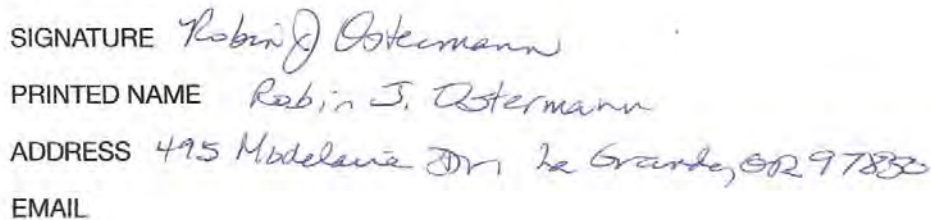 SIGNATURE Robin J Ostermann
PRINTED NAME Robin J. Ostermann
ADDRESS 495 Modelaire Dr, La Grande, OR 97850
EMAIL